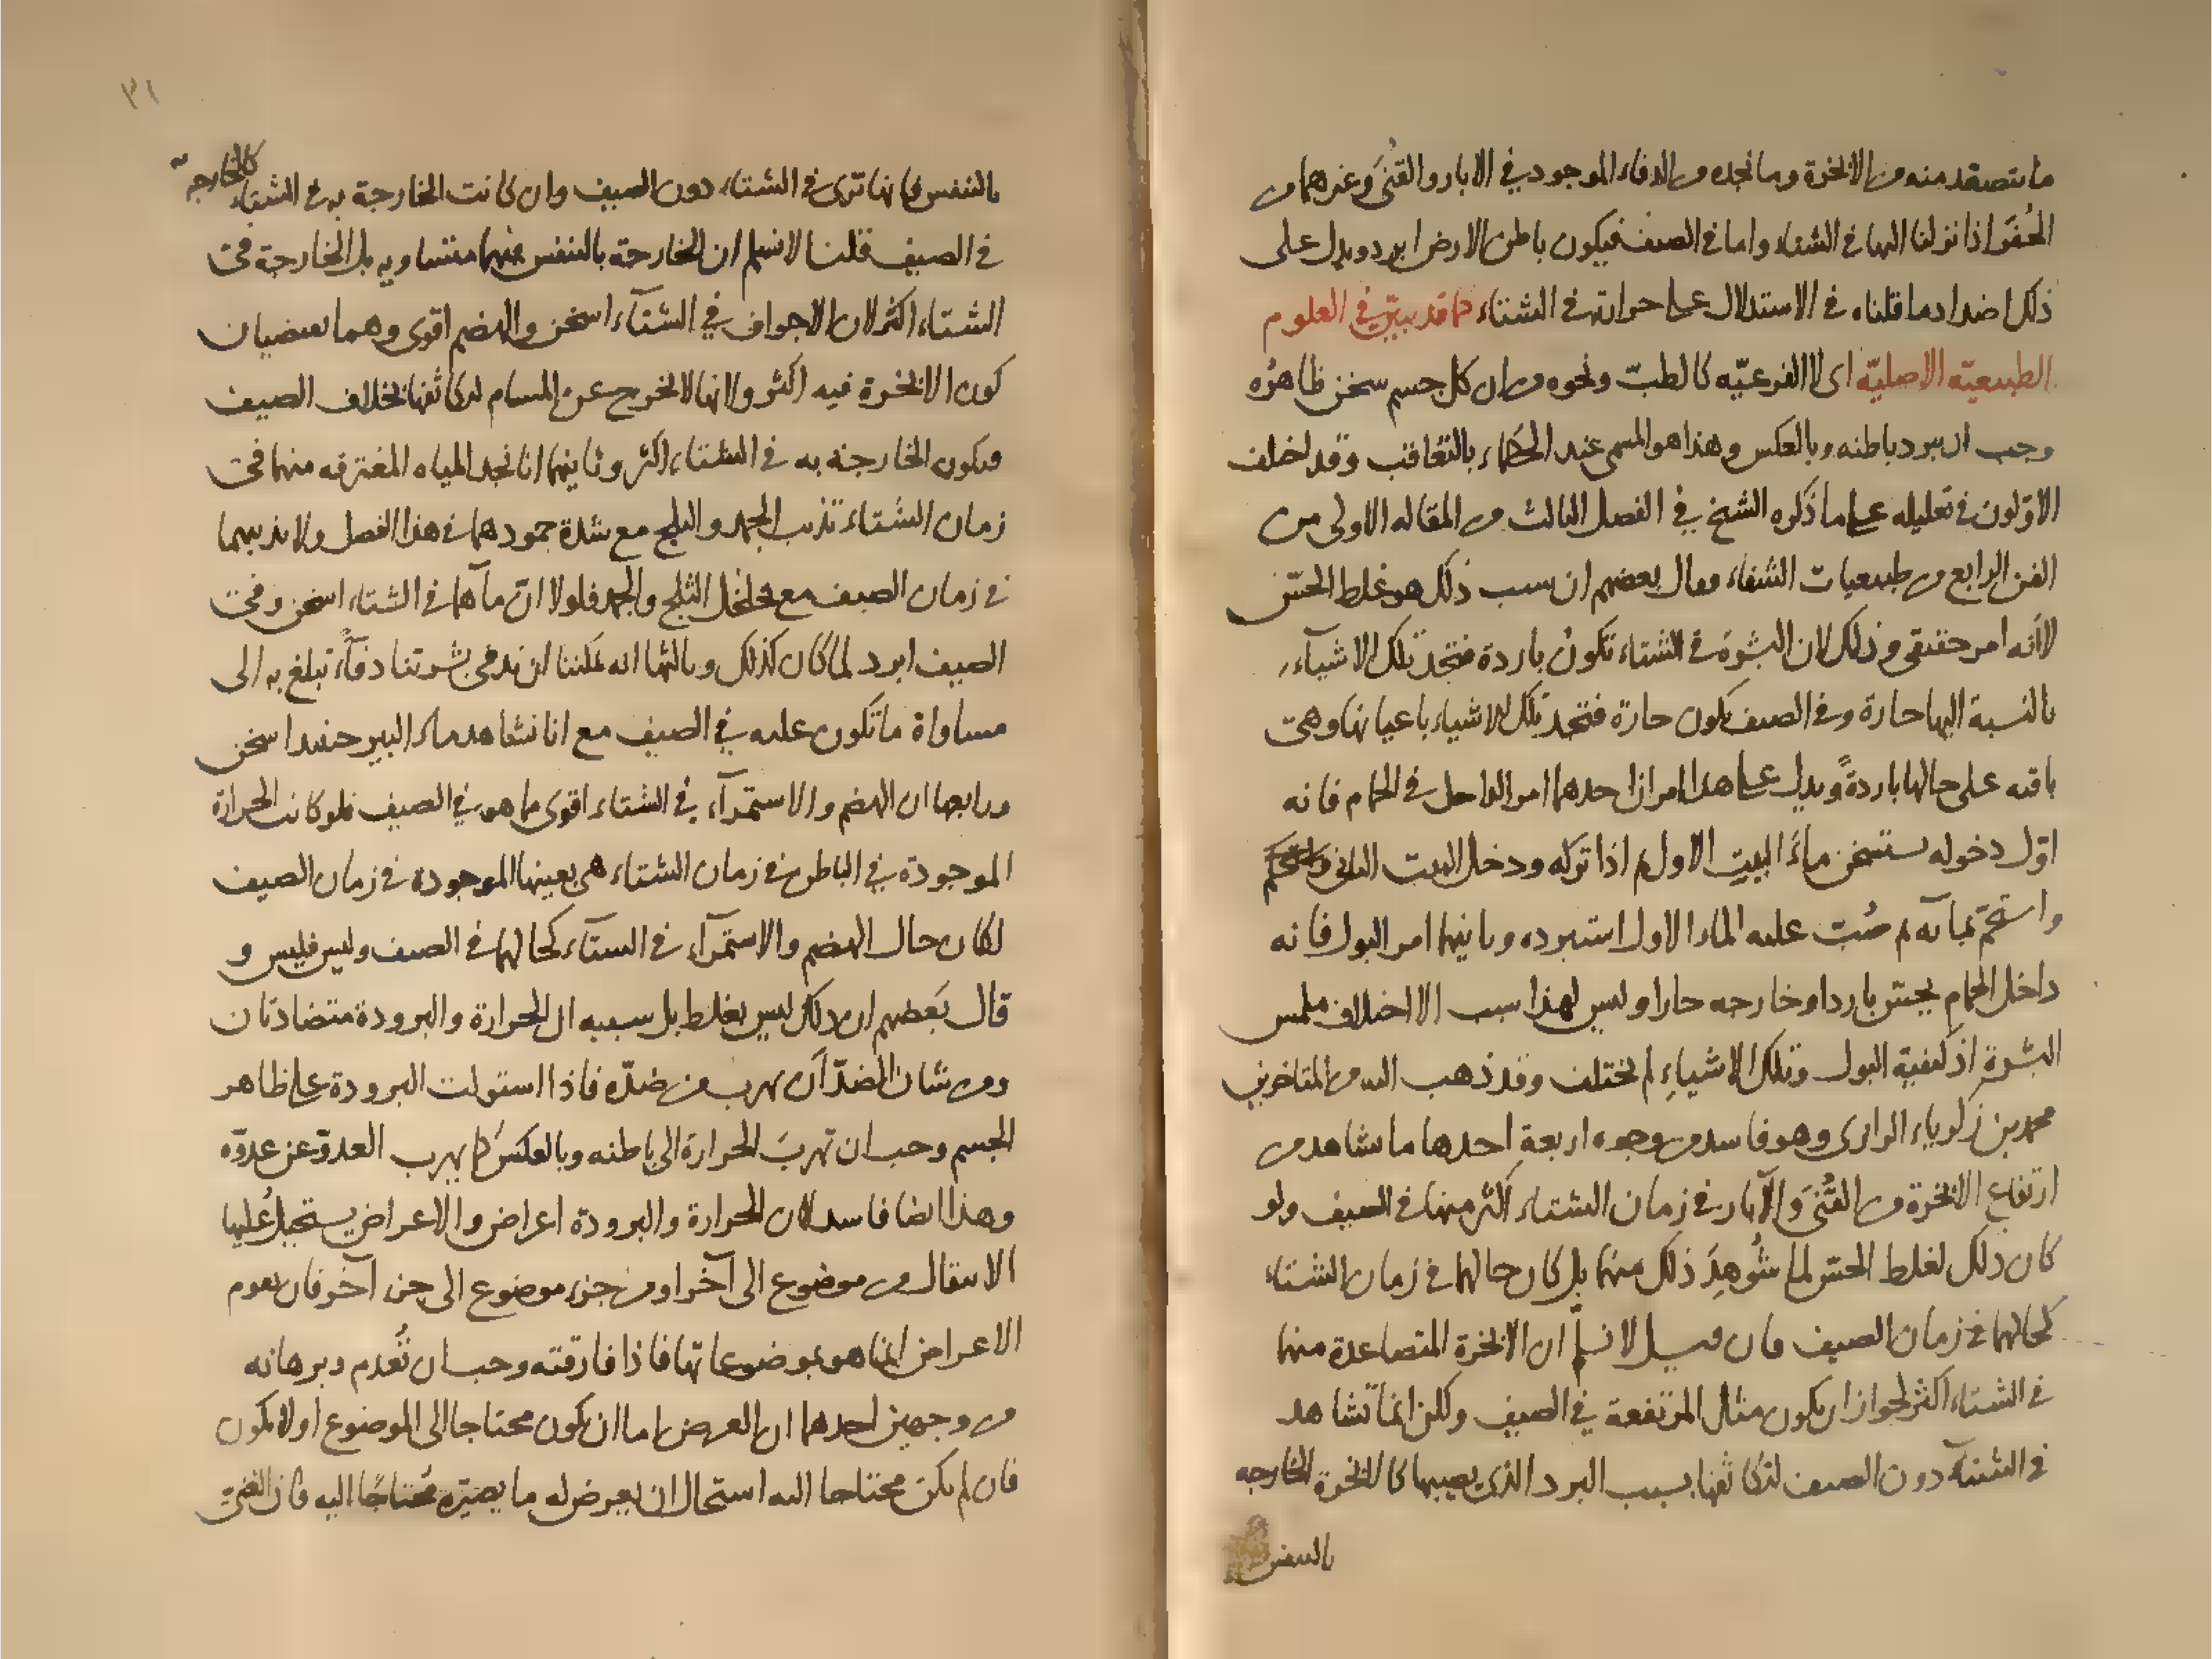 ما يتصعد منه من الابخرة وما نجده من الدفاء الموجود في الابار والقُنَى وغيرهما من
الحُفَر اذا نزلنا اليها في الشتاء واما في الصيف فيكون باطن الارض ابرد ويدل على
ذلك اضداد ما قلناه في الاستدلال على حرارته في الشتاء كما قد يبيّن في العلوم
الطبيعيّه الاصليّه اى لا الفرعيّه كالطبّ ونحوه من ان كل جسم سخن ظاهرُه
وجب ان يبرد باطنه وبالعكس وهذا هو المسمى عند الحكماء بالتعاقب وقد اختلف
الاوّلون في تعليله على ما ذكره الشيخ في الفصل الثالث من المقاله الاولى من
الفن الرابع من طبيعيات الشفاء فقال بعضهم ان سبب ذلك هو غلط الحسّ
لا انه امر حقيقى وذلك لان البشرة في الشتاء تكون باردة فتجد تلك الاشياء
بالنسبة اليها حارة وفي الصيف تكون حارة فتجد تلك الاشياء باعيانها وهى
باقيه على حالها باردةً ويدل على هذا امران احدهما امر الداخل في الحمام فانه
اوّل دخوله يستسخن ماءَ البيت الاول ثم اذا تركه ودخل البيت الثانى
واستحمّ بمآئه ثم صُبّ عليه الماء الاول استبرده وثانيهما امر البول فانه
داخل الحمام يحسّ باردا وخارجه حارا وليس لهذا سبب الا اختلاف ملمس
البشرة اذ كيفية البول وتلك الاشياءِ لم تختلف وقد ذهب اليه من المتاخرين
محمد بن زكرياء الرازى وهو فاسد من وجوه اربعة احدها ما نشاهد من
ارتفاع الابخرة من القُنَى وَالآبار في زمان الشتاء اكثر منها في الصيف ولو
كان ذلك لغلط الحسّ لما شُوهِدَ ذلك منهما بل كان حالهما في زمان الشتاء
كحالهما في زمان الصيف فان قيل لا نسلّم ان الابخرة المتصاعدة منهما
في الشتاء اكثر لجواز ان يكون مثل المرتفعة في الصيف ولكن انما تشاهد
في الشتآء دون الصيف لتكاثفها بسبب البرد الذى يصيبها كالابخرة الخارجه
بالتنفس
٣١
بالتنفس فانها ترى في الشتاء دون الصيف وان كانت الخارجة به في الشتاء كالخارجه
في الصيف قلنا لا نسلم ان الخارجة بالتنفس فيهما متساويه بل الخارجة في
الشتاء اكثر لان الاجواف في الشتآء اسخن والهضم اقوى وهما يقتضيان
كون الابخرة فيه اكثر ولانها لا تخرج عن المسام لتكاثفها بخلاف الصيف
فيكون الخارجة به في الشتاء اكثر وثانيهما انا نجد المياه المغترفه منهما في
زمان الشتاء تذيب الجمد والثلج مع شدة جمودهما في هذا الفصل ولا يذيبهما
في زمان الصيف مع تخلخل الثلج والجمد فلولا انّ مآءهما في الشتاء اسخن وفي
الصيف ابرد لما كان كذلك وثالثها انه يمكننا ان ندفى بشرتنا دفآءً تبلغ به الى
مساواة ما تكون عليه في الصيف مع انا نشاهد ماء البير حينئذ اسخن
ورابعها ان الهضم والاستمرآء في الشتاء اقوى مما هو في الصيف فلو كانت الحرارة
الموجودة في الباطن في زمان الشتاء هى بعينها الموجودة في زمان الصيف
لكان حال الهضم والاستمرآء في الشتآء كحالهما في الصيف وليس فليس و
قال بعضهم ان ذلك ليس بغلط بل سببه ان الحرارة والبرودة متضادتان
ومن شان الضدّ ان يهرب من ضدّه فاذا استولت البرودة على ظاهر
الجسم وجب ان تهربَ الحرارة الى باطنه وبالعكس كما يهرب العدوّ عن عدوّه
وهذا ايضا فاسد لان الحرارة والبرودة اعراض والاعراض يستحيل عليها
الانتقال من موضوع الى آخر او من جزء موضوع الى جزء آخر فان تقوم
الاعراض انما هو بموضوعاتها فاذا فارقته وجب ان تُعدم وبرهانه
من وجهين احدهما ان العرض اما ان يكون محتاجا الى الموضوع او لا يكون
فان لم يكن محتاجا اليه استحال ان يعرض له ما يصيّره مُحتاجًا اليه فان الغنىّ